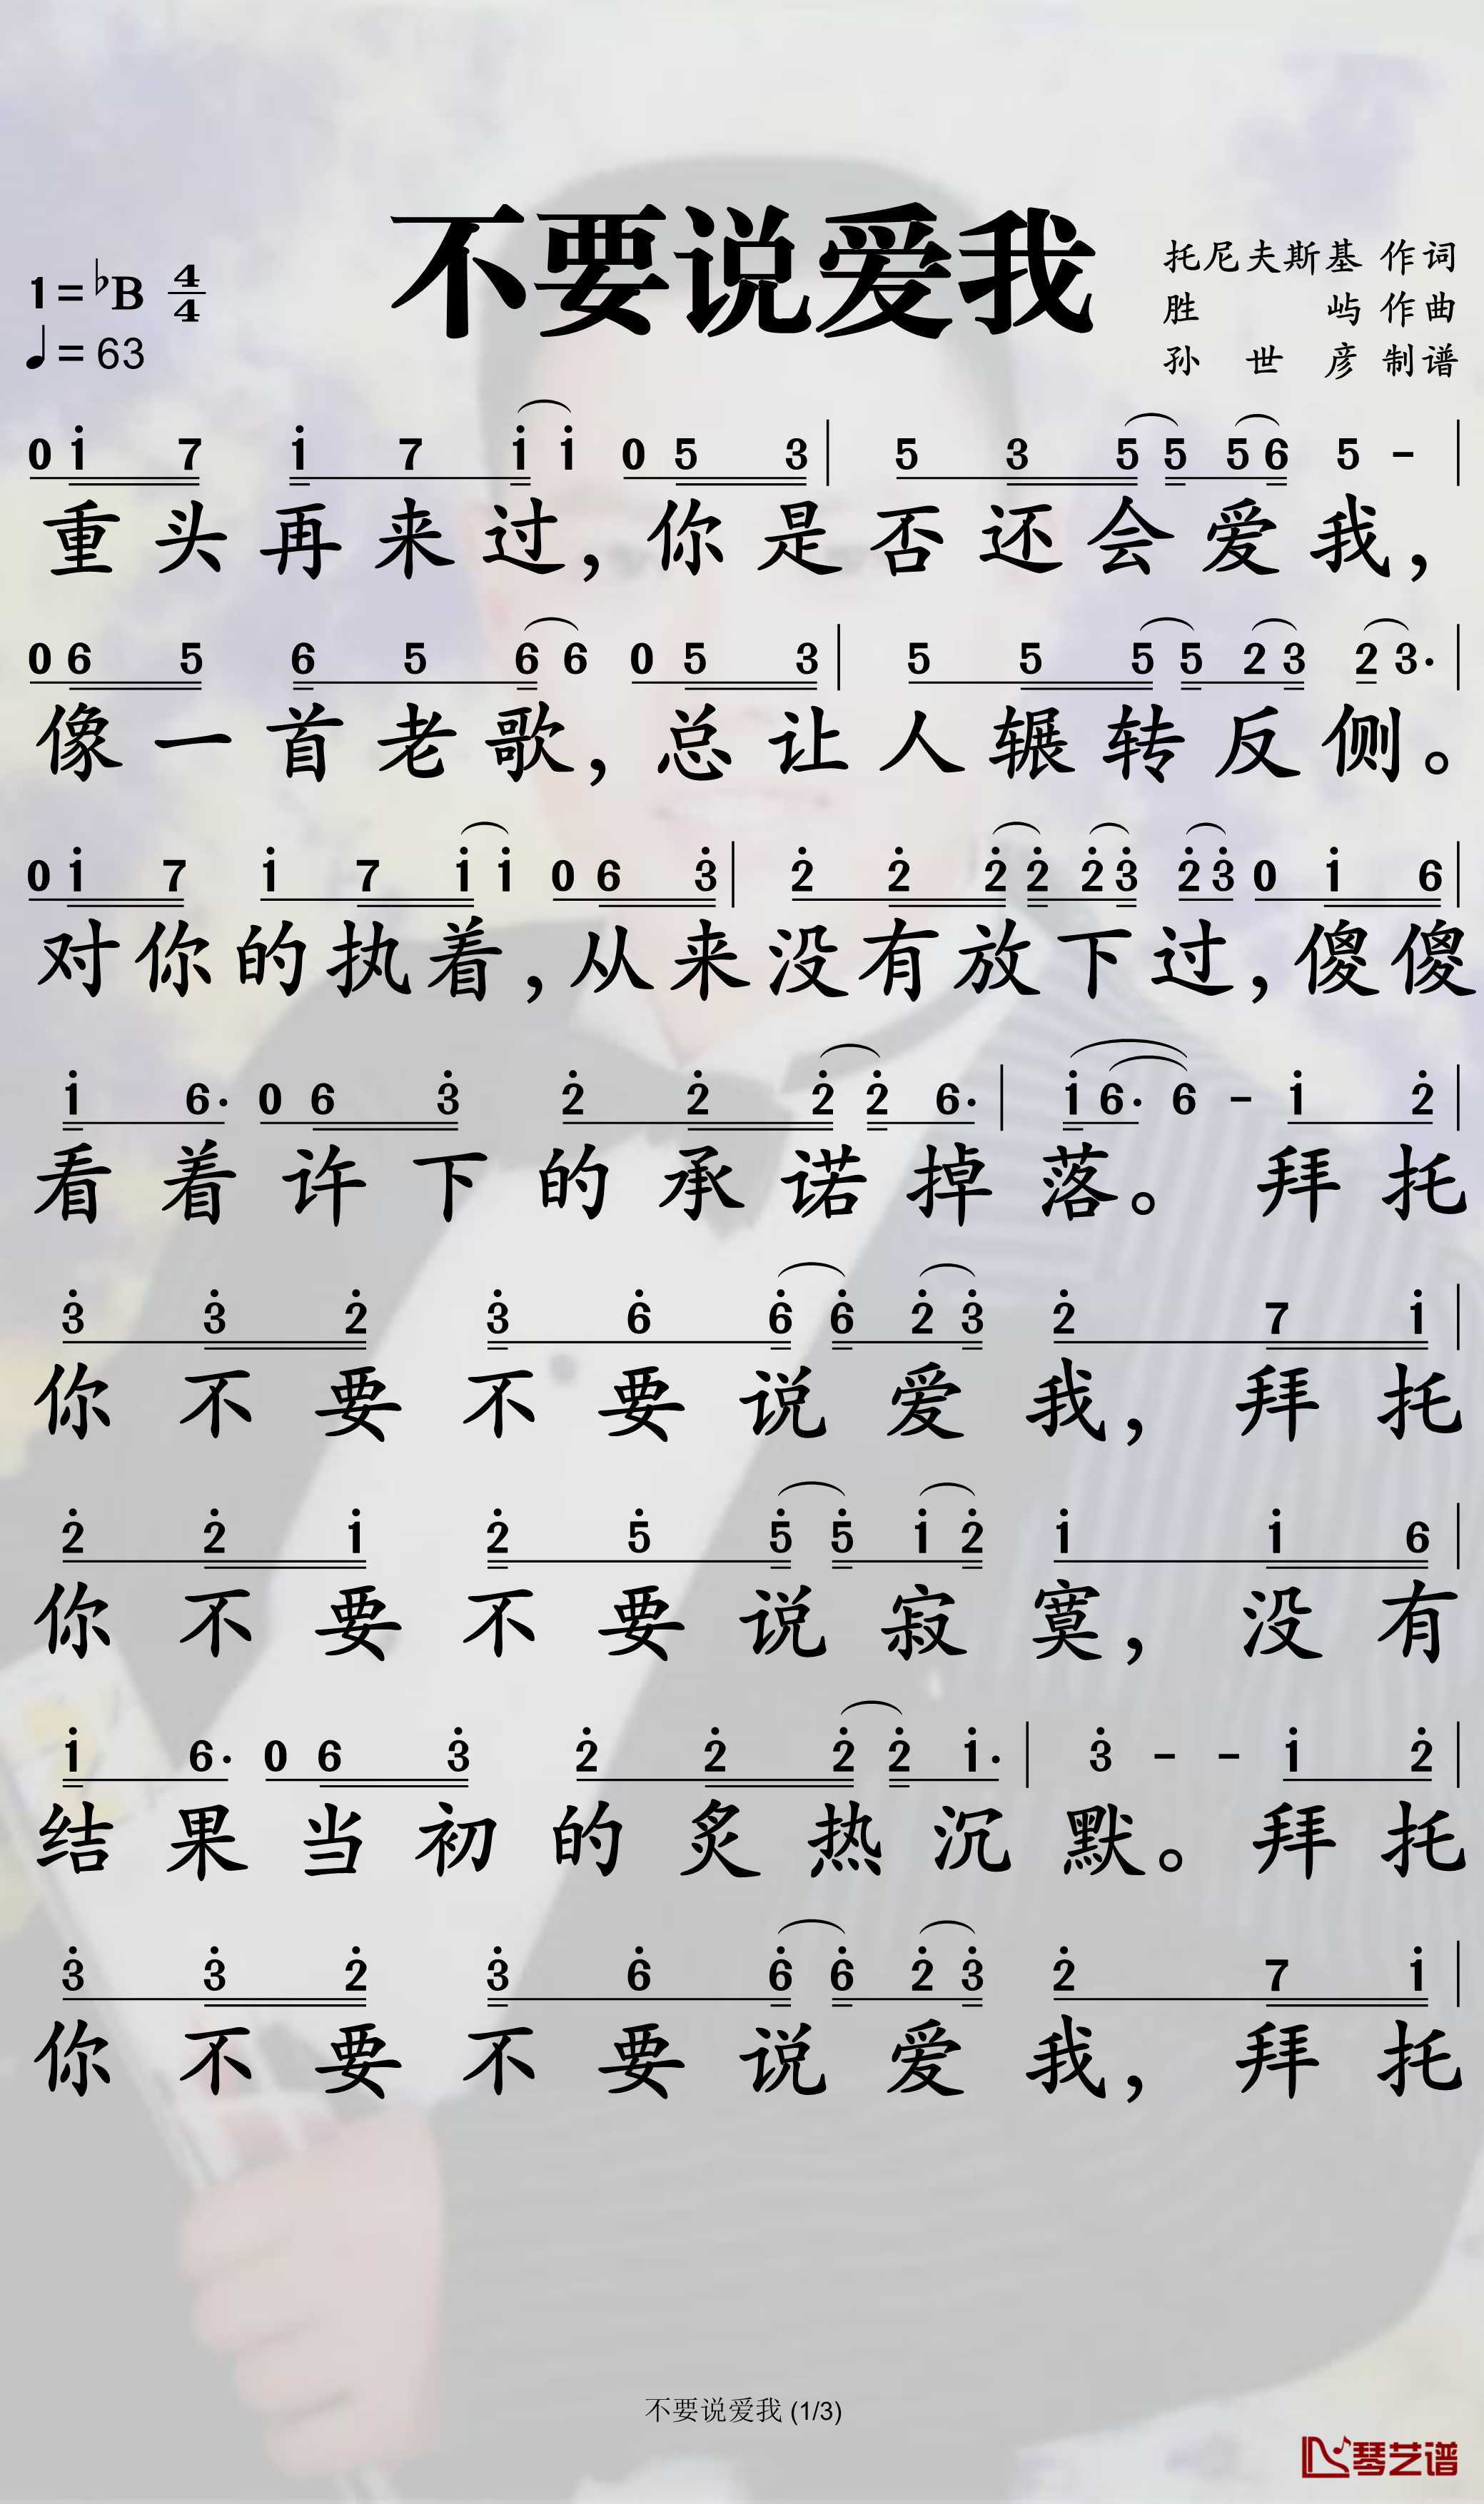 不要说爱我
1=♭B 4/4
♩=63
托尼夫斯基 作词
胜屿 作曲
孙世彦 制谱
0 1̇ 7 1̇ 7 1̇ 1̇ 0 5 3 | 5 3 5 5 5 6 5 - |
重头再来过，你是否还会爱我，
0 6 5 6 5 6 6 0 5 3 | 5 5 5 5 2 3 2 3· |
像一首老歌，总让人辗转反侧。
0 1̇ 7 1̇ 7 1̇ 1̇ 0 6 3̇ | 2̇ 2̇ 2̇ 2̇ 2̇ 3̇ 2̇ 3̇ 0 1̇ 6 |
对你的执着，从来没有放下过，傻傻
1̇ 6· 0 6 3̇ 2̇ 2̇ 2̇ 2̇ 6· | 1̇ 6· 6 - 1̇ 2̇ |
看着许下的承诺掉落。拜托
3̇ 3̇ 2̇ 3̇ 6̇ 6̇ 6̇ 2̇ 3̇ 2̇ 7 1̇ |
你不要不要说爱我，拜托
2̇ 2̇ 1̇ 2̇ 5̇ 5̇ 5̇ 1̇ 2̇ 1̇ 1̇ 6 |
你不要不要说寂寞，没有
1̇ 6· 0 6 3̇ 2̇ 2̇ 2̇ 2̇ 1̇· | 3̇ - - 1̇ 2̇ |
结果当初的炙热沉默。拜托
3̇ 3̇ 2̇ 3̇ 6̇ 6̇ 6̇ 2̇ 3̇ 2̇ 7 1̇ |
你不要不要说爱我，拜托
不要说爱我 (1/3)
琴艺谱